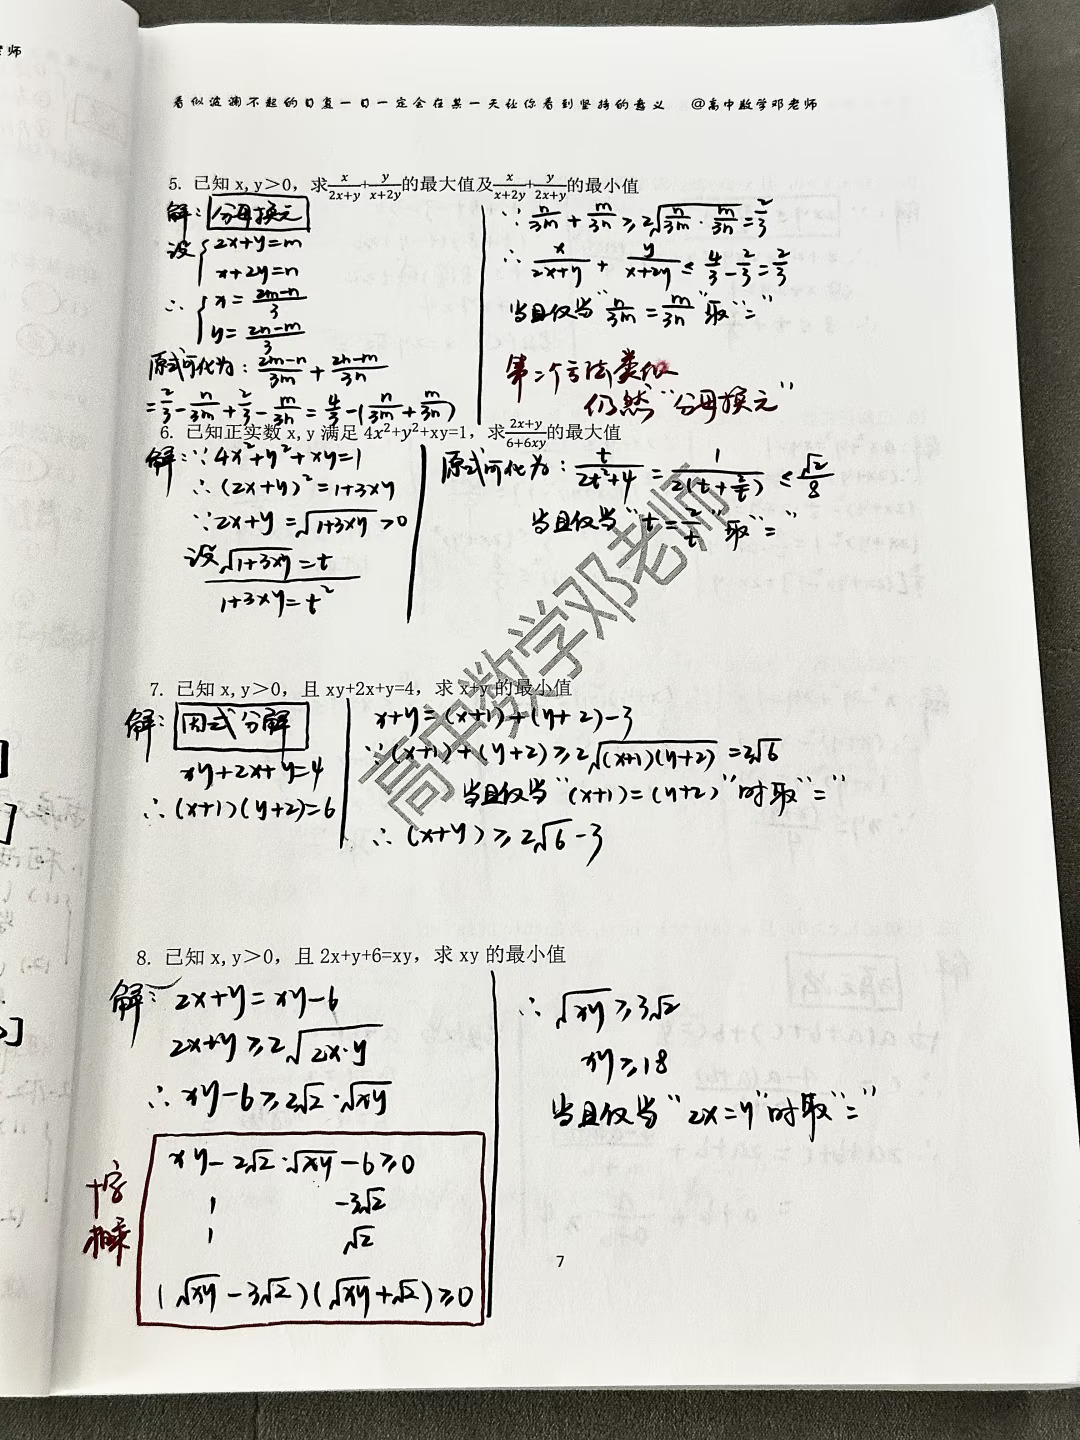 老师
看似波澜不起的日复一日一定会在某一天让你看到坚持的意义 @高中数学邓老师
5. 已知 x,y＞0，求x/(2x+y)+y/(x+2y)的最大值及x/(x+2y)+y/(2x+y)的最小值
解: 分母换元
设 { 2x+y=m
x+2y=n
∴ { x=(2m-n)/3
y=(2n-m)/3
原式可化为: (2m-n)/3m + (2n-m)/3n
=2/3-n/3m+2/3-m/3n=4/3-(n/3m+m/3n)
∵ n/3m+m/3n≥2√(n/3m·m/3n)=2/3
∴ x/(2x+y)+y/(x+2y)≤4/3-2/3=2/3
当且仅当“n/3m=m/3n”取“=”
第二个方法类似
仍然“分母换元”
6. 已知正实数 x,y 满足 4x²+y²+xy=1，求(2x+y)/(6+6xy)的最大值
解: ∵4x²+y²+xy=1
∴(2x+y)²=1+3xy
∵2x+y=√(1+3xy)>0
设√(1+3xy)=t
1+3xy=t²
原式可化为: t/(2t²+4)=1/(2(t+2/t))≤√2/8
当且仅当“t=2/t”取“=”
7. 已知 x,y＞0，且 xy+2x+y=4，求 x+y 的最小值
解: 因式分解
xy+2x+y=4
∴(x+1)(y+2)=6
x+y=(x+1)+(y+2)-3
∵(x+1)+(y+2)≥2√((x+1)(y+2))=2√6
当且仅当“(x+1)=(y+2)”时取“=”
∴(x+y)≥2√6-3
8. 已知 x,y＞0，且 2x+y+6=xy，求 xy 的最小值
解: 2x+y=xy-6
2x+y≥2√(2x·y)
∴xy-6≥2√2·√xy
十字
相乘
xy-2√2·√xy-6≥0
1 -3√2
1 √2
(√xy-3√2)(√xy+√2)≥0
∴√xy≥3√2
xy≥18
当且仅当“2x=y”时取“=”
高中数学邓老师
7